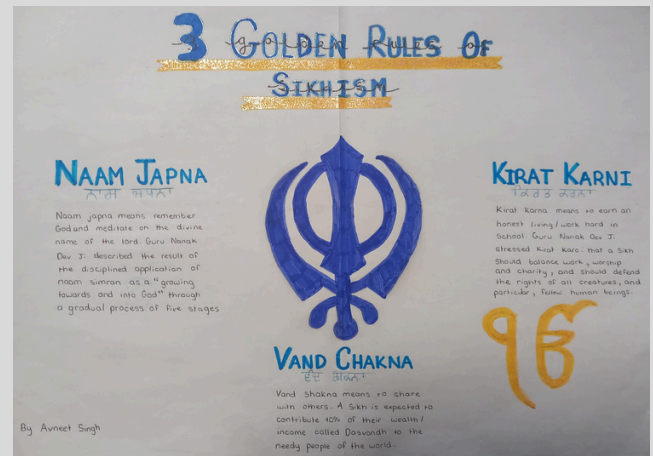 3 Golden Rules Of
Sikhism
Naam Japna
ਨਾਮ ਜਪਨਾ
Naam japna means remember
God and meditate on the divine
name of the lord. Guru Nanak
Dev Ji described the result of
the disciplined application of
naam simran as a "growing
towards and into God" through
a gradual process of five stages
Kirat Karni
ਕਿਰਤ ਕਰਨਾ
Kirat Karna means to earn an
honest living/work hard in
School. Guru Nanak Dev Ji
stressed Kirat Karo: that a Sikh
should balance work, worship
and charity, and should defend
the rights of all creatures, and
particular, fellow human beings.
ੴ
Vand Chakna
ਵੰਡ ਛਕਨਾ
Vand Shakna means to share
with others. A Sikh is expected to
contribute 10% of their wealth/
income called Dasvandh to the
needy people of the world.
By Avneet Singh